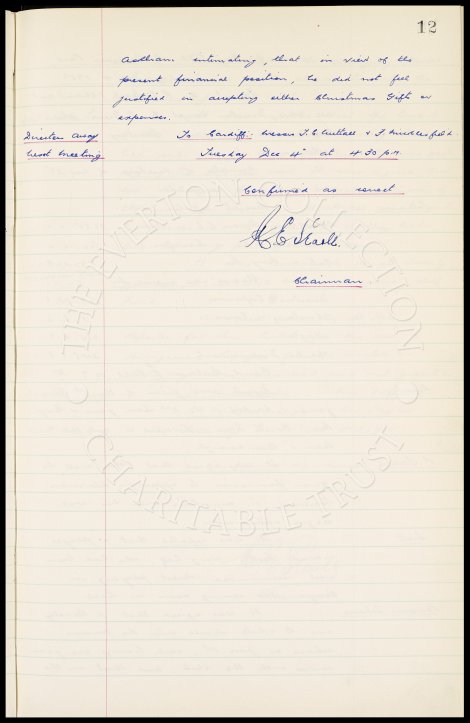 12
intimating, that in view of the
present financial position, he did not feel
justified in accepting either Christmas Gifts or
expenses.
Directors away To Cardiff: Messrs T.C. Nuttall & F. Micklesfield.
Next Meeting Tuesday Dec 4th at 4.30 p.m.
Confirmed as correct
Chairman.
THE EVERTON COLLECTION
CHARITABLE TRUST